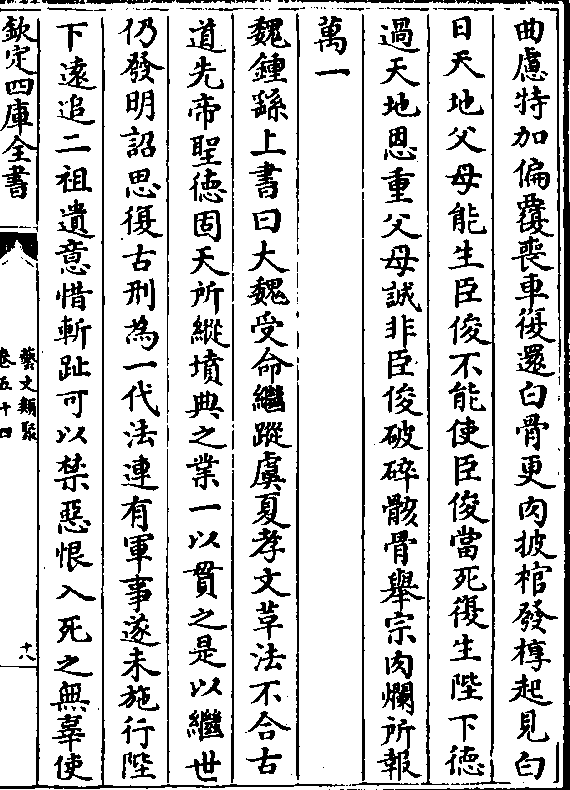 曲慮特加偏覆喪車復還白骨更肉披棺發槨起見白
日天地父母能生臣俊不能使臣俊當死復生陛下德
過天地恩重父母誠非臣俊破碎骸骨舉宗肉爛所報
萬一
魏鍾繇上書曰大魏受命繼蹤虞夏孝文草法不合古
道先帝聖德固天所縱墳典之業一以貫之是以繼世
仍發明詔思復古刑為一代法連有軍事遂未施行陛
下遠追二祖遺意惜斬趾可以禁惡恨入死之無辜使
欽定四庫全書
藝文類聚
卷五十四
十八